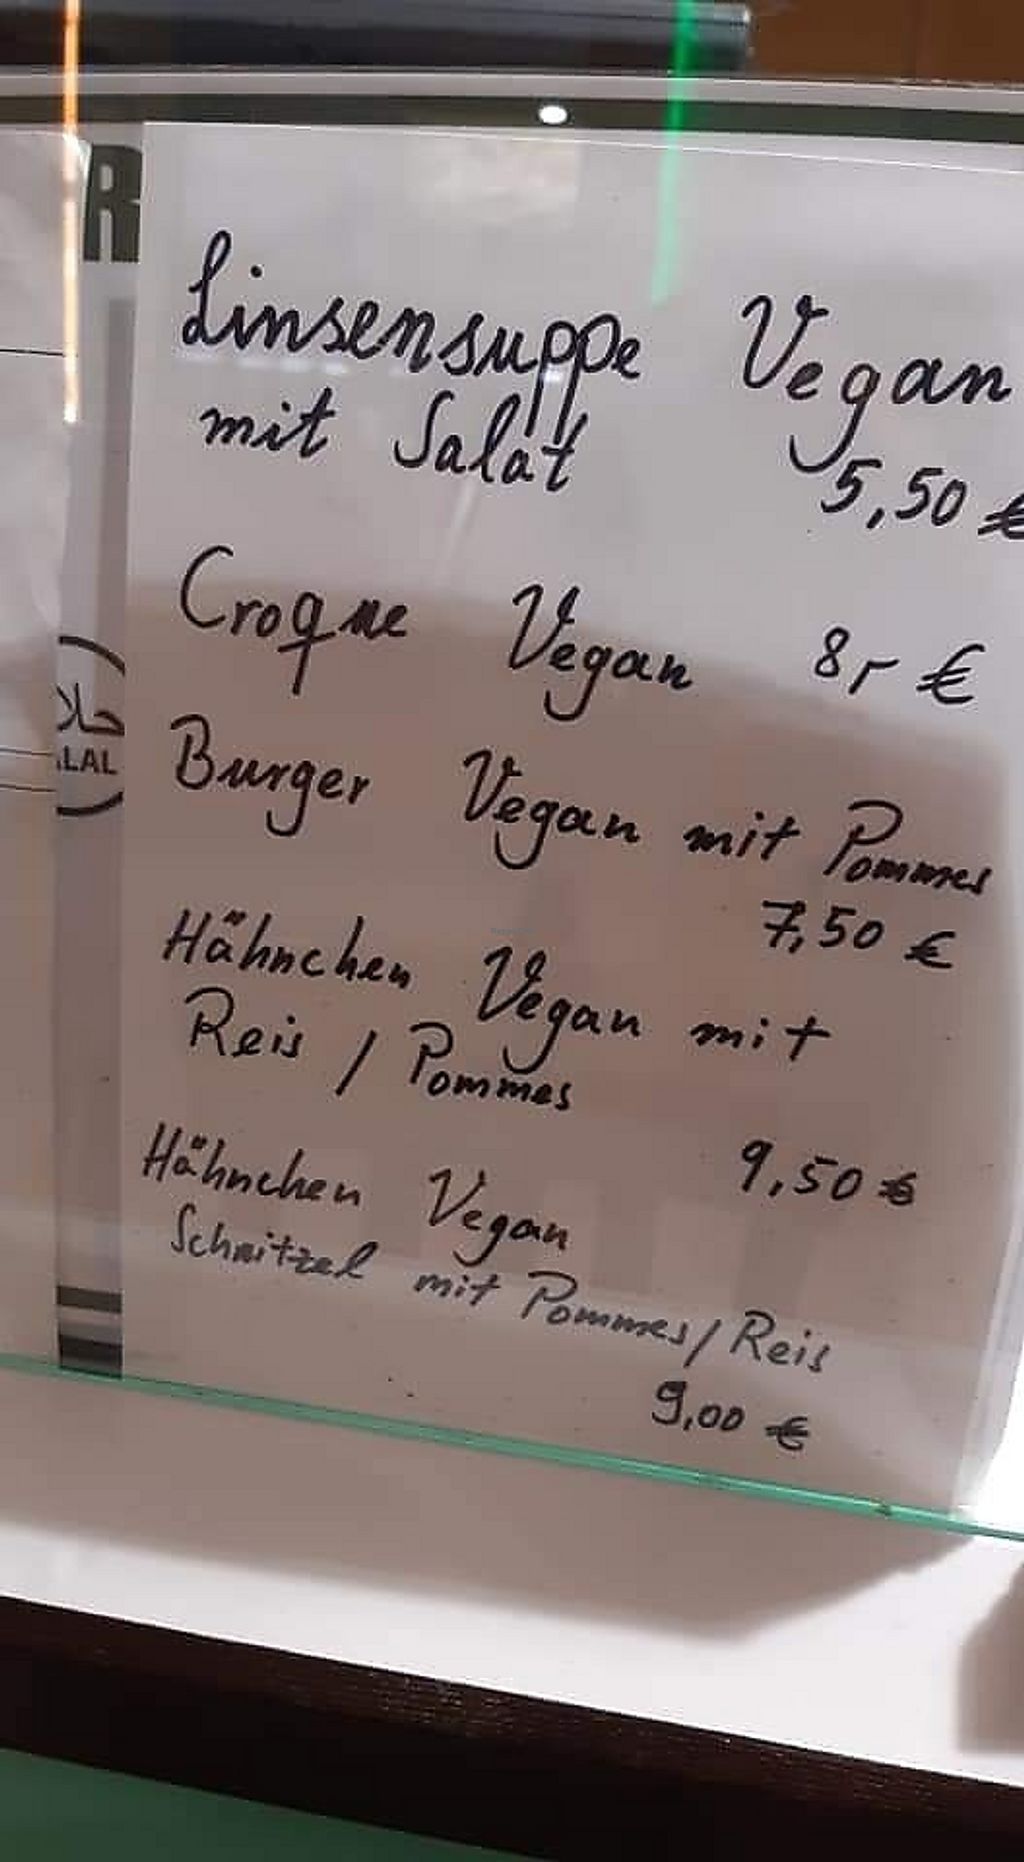 R
Linsensuppe Vegan
mit Salat
5,50 €
Croque Vegan 8,- €
حلا
LAL
Burger Vegan mit Pommes
7,50 €
Hähnchen Vegan mit
Reis / Pommes
9,50 €
Hähnchen Vegan
Schnitzel mit Pommes/Reis
9,00 €